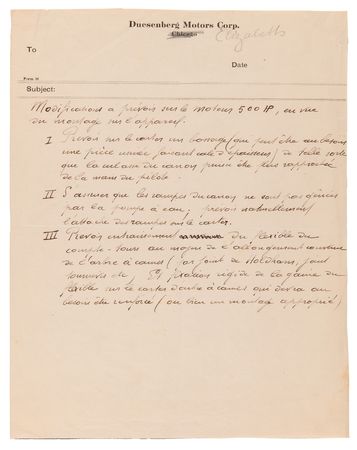 Duesenberg Motors Corp.
Chicago Elizabeth
To
Date
Form 10
Subject:
Modifications a prevoir sur le moteur 500 HP, en vue
du montage sur l'appareil.
I Prevoir sur le carter un bossage (qui peut être au besoin
une pièce usinée faisant cale d'épaisseur) de telle sorte
que la culasse du canon puisse être plus rapprochée
de la main du pilote.
II S'assurer que les rampes du canon ne sont pas gênées
par la pompe a eau, prevoir naturellement
l'attache des rampes sur le carter.
III Prevoir entrainement du flexible du
compte-tours au moyen de l'allongement
de l'arbre à cames (par joint de Holdham, joint
etc, et fixation rigide de la gaine du
flexible sur le carter d'arbre à cames qui devra au
besoin être renforcé (ou bien un montage approprié)